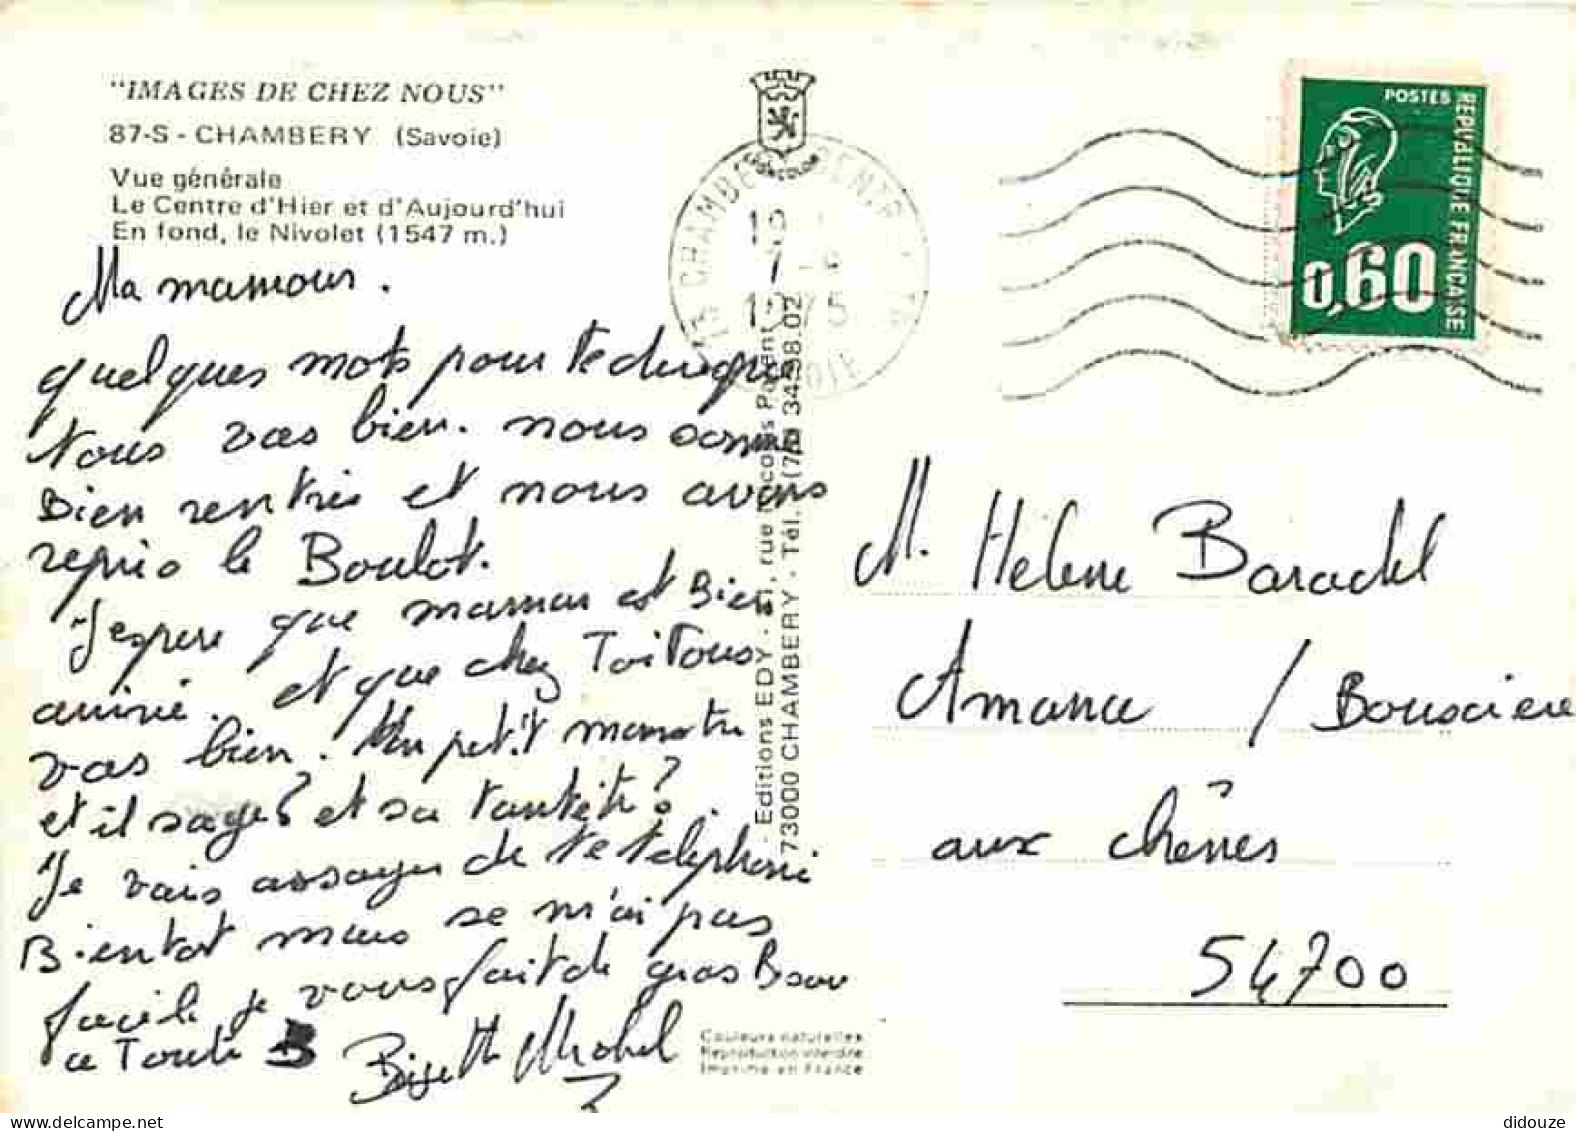 "IMAGES DE CHEZ NOUS"
87-S - CHAMBERY (Savoie)
Vue générale
Le Centre d'Hier et d'Aujourd'hui
En fond, le Nivolet (1547 m.)
Ma mamour.
quelques mots pour te dire que
tous vas bien. nous somme
Bien rentrés et nous avons
repris le Boulot.
J'espere que maman est Bien
arrivé. et que chez Toi Tous
vas bien. Mon petit monstre
et il sage? et sa tantêt?
Je vais assayer de te telephoni
Bientot mais se m'ai pas
facile je vous fait de gros Bsou
a Toute
Michel
POSTES
REPUBLIQUE FRANCAISE
0,60
73 CHAMBERY
19
7-8
1975
SAVOIE
Editions EDY - rue Nicolas Parent
73000 CHAMBERY - Tél. (79) 34.98.02
M. Hélène Baradel
Amance / Bouxciere
aux chênes
54700
Couleurs naturelles
Reproduction interdite
Imprimé en France
didouze